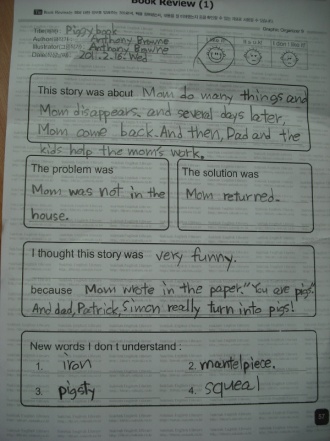 Book Review (1)
Graphic Organizer
Title(제목): Piggybook
Author(저자): Anthony Browne
Illustrator(그림작가): Anthony Browne
Date(날짜): 2011.2.16. Wed
This story was about Mom do many things and
Mom disappears. and several days later,
Mom come back. And then, Dad and the
kids help the mom's work.
The problem was
Mom was not in the
house.
The solution was
Mom returned.
I thought this story was very funny.
because Mom wrote in the paper. "You are pigs."
And dad, Patrick, Simon really turn into pigs!
New words I don t understand :
1. iron
2. mantelpiece.
3. pigsty
4. squeal
57